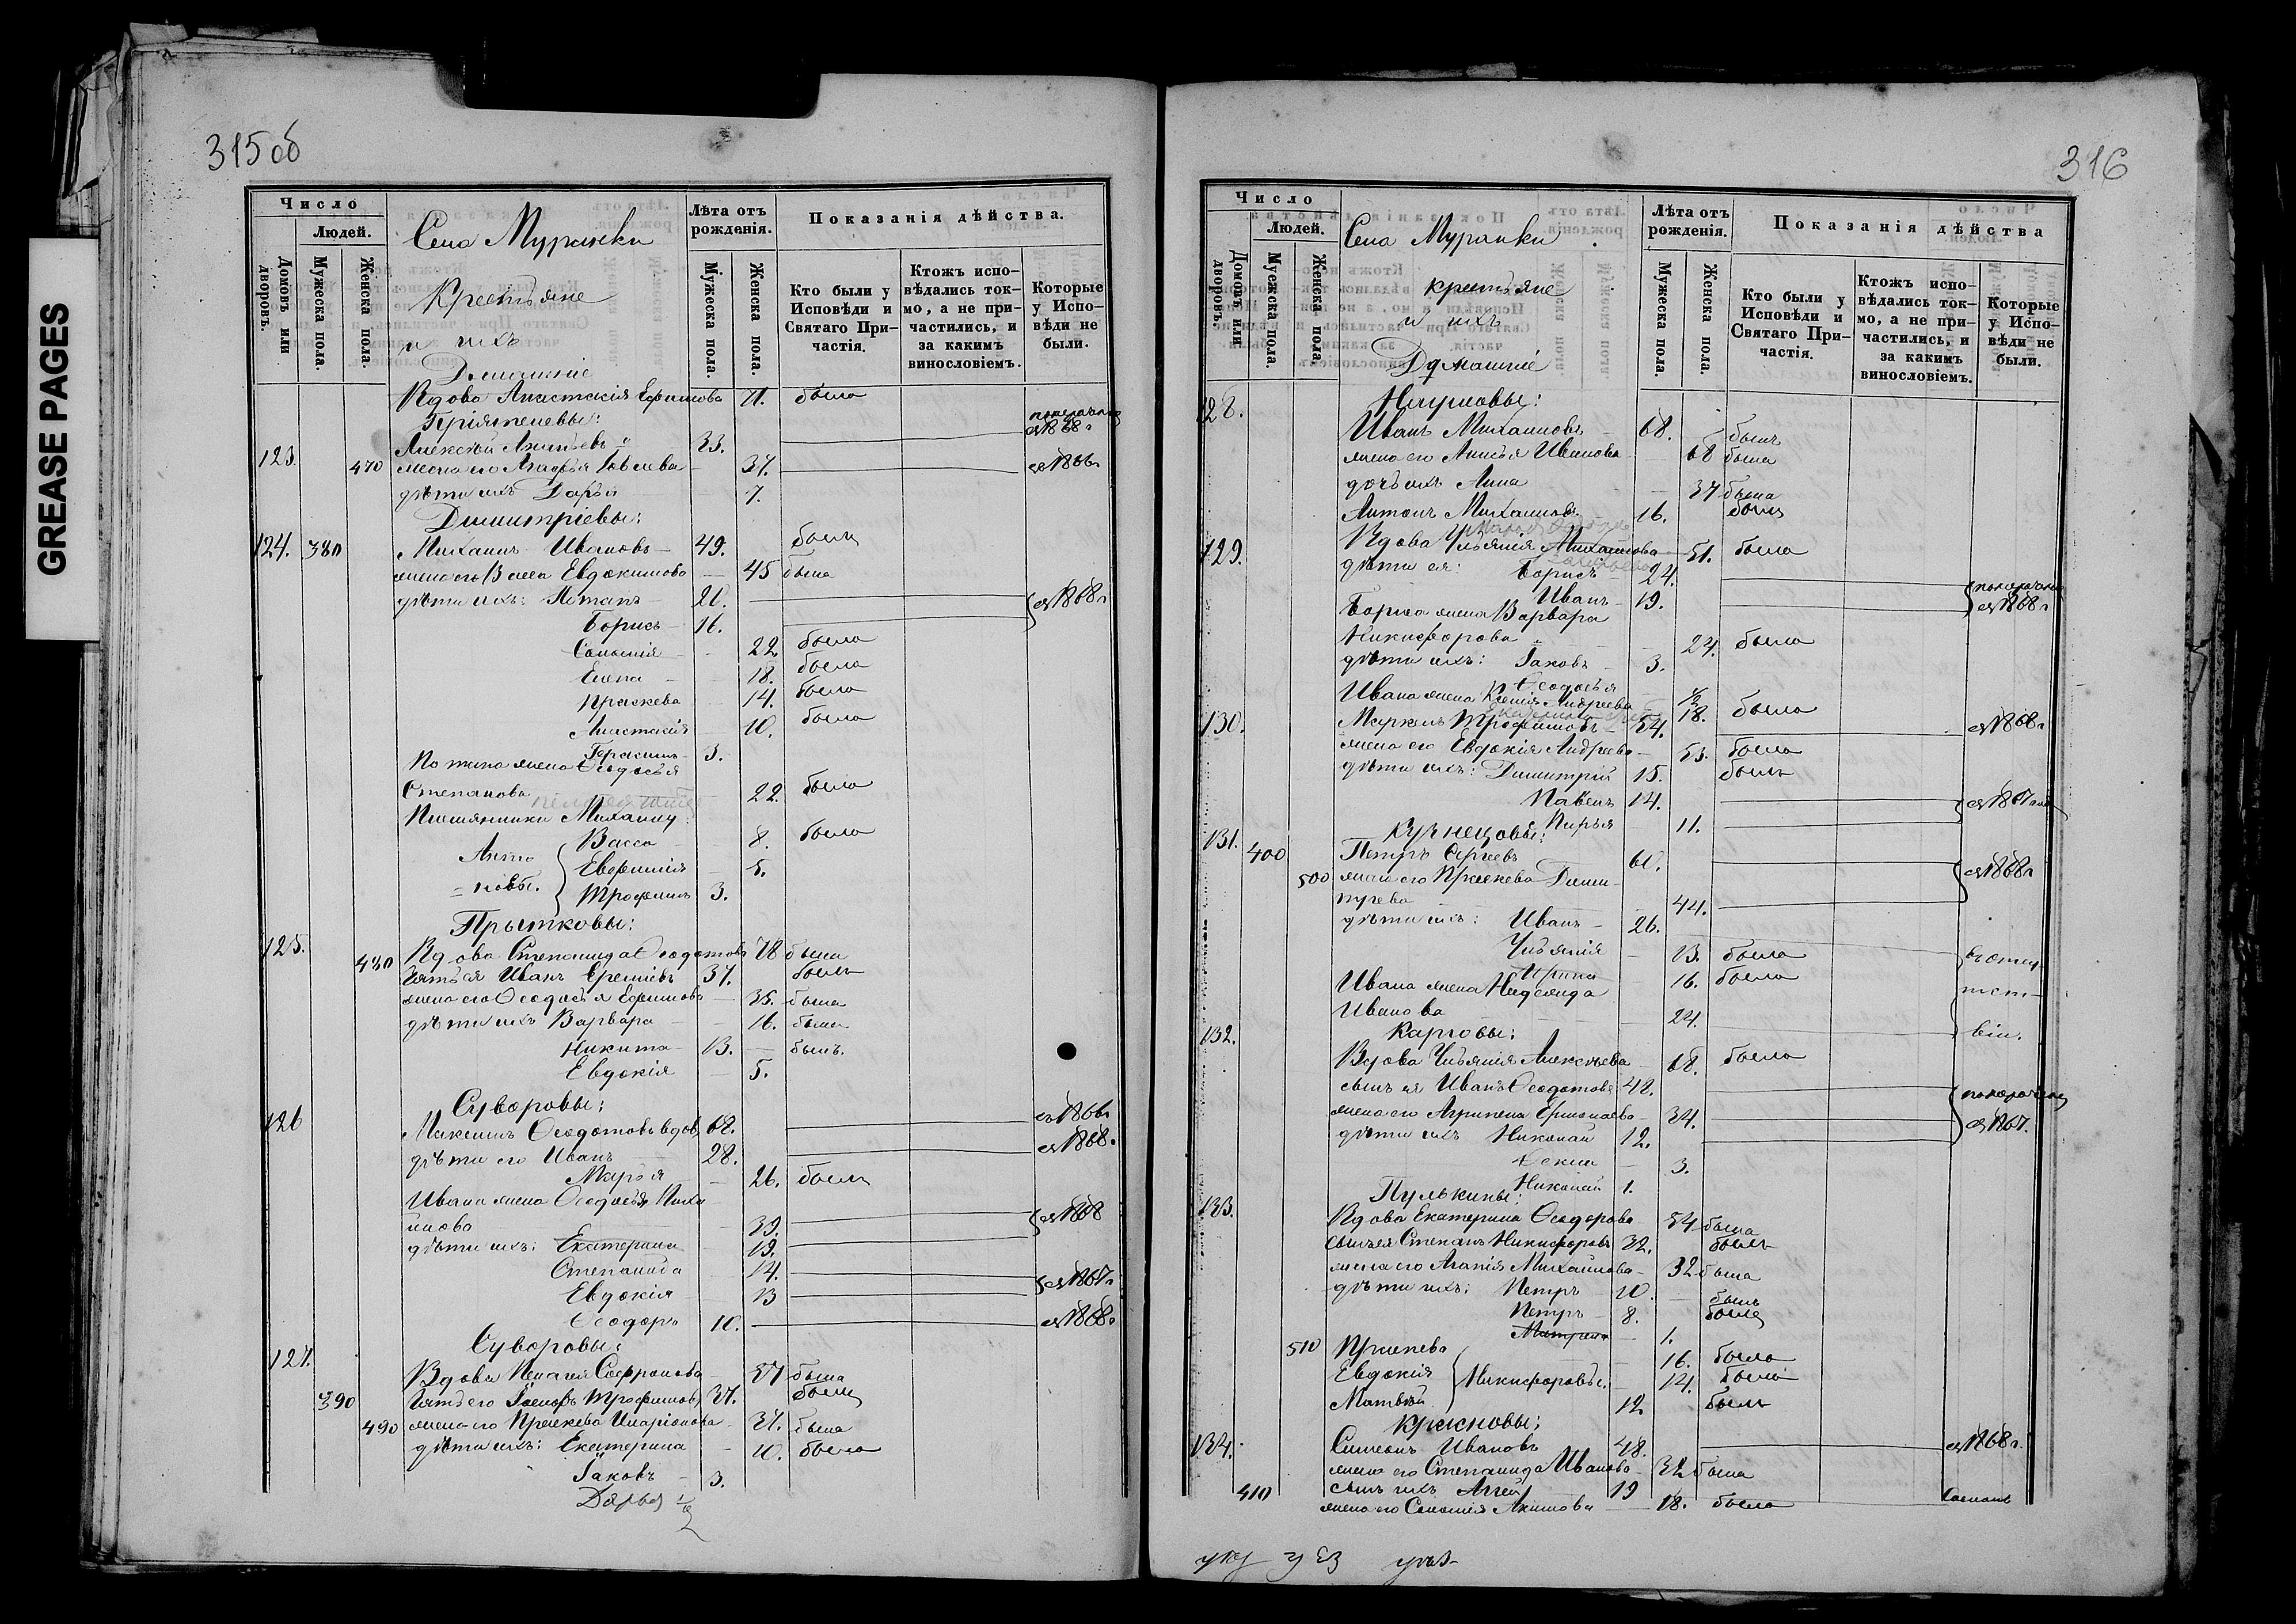 GREASE PAGES
315 об
Число
Людей.
Домовъ или дворовъ.
Мужеска пола.
Женска пола.
Села Муранки
Крестьяне
и ихъ
Домашніе
Лѣта отъ рожденія.
Мужеска пола.
Женска пола.
Показанія дѣйства.
Кто были у Исповѣди и Святаго Причастія.
Ктожъ исповѣдались токмо, а не причастились, и за какимъ винословіемъ.
Которые у Исповѣди не были.
Вдова Анастасія Ефимова 71. была
Пріятелевы:
123. Алексѣй Ананьевъ 33. съ 1868 г
470 жена его Агафья 37. съ 1866 г
дѣти ихъ Дарья 7.
Димитріевы:
124. 380 Михаилъ Ивановъ 49. былъ
жена его Васса Евдокимова 45 была
дѣти ихъ: Потапъ 21. съ 1868 г
Борисъ 16.
Соломія 22 была
Елена 18. была
Праскева 14. была
Анастасія 10. была
Герасимъ 3.
Потапа жена Ѳеодосья
Степанова 22. была
Племянники Михаилу:
Васса 8. была
Анто- Евфимія 5.
новы. Трофимъ 3.
Прытковы:
125. 480 Вдова Степанида Ѳеодотова 78 была
Зять ея Иванъ Еремѣевъ 37. былъ
жена его Ѳеодосья Ефимова 36. была
дѣти ихъ Варвара 16. была
Никита 13. былъ.
Евдокія 5.
Суворовы:
126 Максимъ Ѳеодотовъ вдов 62. съ 1866 г
дѣти его Иванъ 28. съ 1868.
Марья 26. была
Ивана жена Ѳеодосья Миха
илова 39. съ 1868
дѣти ихъ: Екатерина 19.
Степанида 14. съ 1867 г
Евдокія 13
Ѳеодоръ 10. съ 1868 г
Суворовы:
127. Вдова Пелагея Софронова 57 была
390 Зять его Іосифъ Трофимовъ 37. былъ
490 жена его Праскева Иларіонова 37. была
дѣти ихъ: Екатерина 10. была
Іаковъ 3.
Дарья
316
Число
Людей.
Домовъ или дворовъ.
Муежска пола.
Женска пола.
Села Муранки
крестьяне
и ихъ
Домашніе
Лѣта отъ рожденія.
Мужеска пола.
Женска пола.
Показанія дѣйства
Кто были у Исповѣди и Святаго Причастія.
Ктожъ исповѣдались токмо, а не причастились, и за какимъ винословіемъ.
Которые у Исповѣди не были.
128. Наумовы:
Иванъ Михаиловъ 68. былъ
жена его Анисья Иванова 68 была
дочь ихъ Анна 37 была
Антонъ Михаиловъ 16. былъ
129. Вдова Ульянія Михайлова 51. была
дѣти ея: Борисъ 24. съ 1868 г
Иванъ 19.
Бориса жена Варвара
Никифорова 24. была
дѣти ихъ: Іаковъ 3.
Ѳеодосья
Ивана жена Ксенія Андреева 18. была
130. Маркелъ Трофимовъ 54. съ 1868 г
жена его Евдокія Андреева 53. была
дѣти ихъ: Димитрій 15. былъ
Павелъ 14. съ 1867
Дарья 11.
131. Кузнецовы:
400 Петръ Сергеевъ 60. съ 1868 г
500 жена его Праскева Дими-
тріева 44.
дѣти ихъ: Иванъ 26.
Ульянія 13. была въ отсут-
Ирина 16. была
Ивана жена Надежда
Иванова 24. ствіи.
132. Карповы:
Вдова Ульянія Алексѣева 68. была
сынъ ея Иванъ Ѳеодотовъ 42.
жена его Агрипена Ермолаева 34. съ 1867.
дѣти ихъ Николай 12.
Ѳекла 3.
Николай 1.
133. Пулькины:
Вдова Екатерина Ѳеодорова 54 была
сынъ ея Степанъ Никифоровъ 32. былъ
жена его Агапія Михаилова 32 была
дѣти ихъ: Петръ 10. былъ
Петръ 8. былъ
Матрена 1.
510 Праскева 16. была
Евдокія Никифоровы. 14. была
Матвѣй 12. былъ
Красновы:
134. Симеонъ Ивановъ 48. съ 1868 г.
жена его Степанида Иванова 32 была
410 сынъ ихъ Алгей 19
жена его Соломія Акимова 18. была